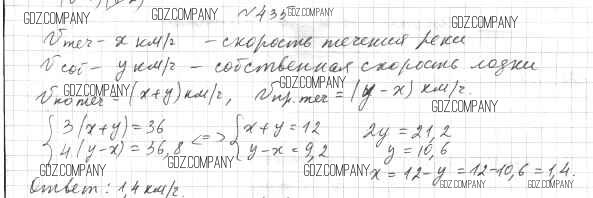 GDZ.COMPANY GDZ.COMPANY №435 GDZ.COMPANY GDZ.COMPANY
Vтеч – x км/г – скорость течения реки
Vсоб – y км/г – собственная скорость лодки
GDZ.COMPANY GDZ.COMPANY
Vпо теч = (x+y) км/г, Vпр.теч = (y – x) км/г.
GDZ.COMPANY
{ 3(x+y) = 36 <=> { x+y = 12 2y = 21,2
{ 4(y-x) = 36,8 { y-x = 9,2 y = 10,6
GDZ.COMPANY GDZ.COMPANY GDZ.COMPANY x = 12-y = 12-10,6 = 1,4.
Ответ: 1,4 км/г. GDZ.COMPANY GDZ.COMPANY